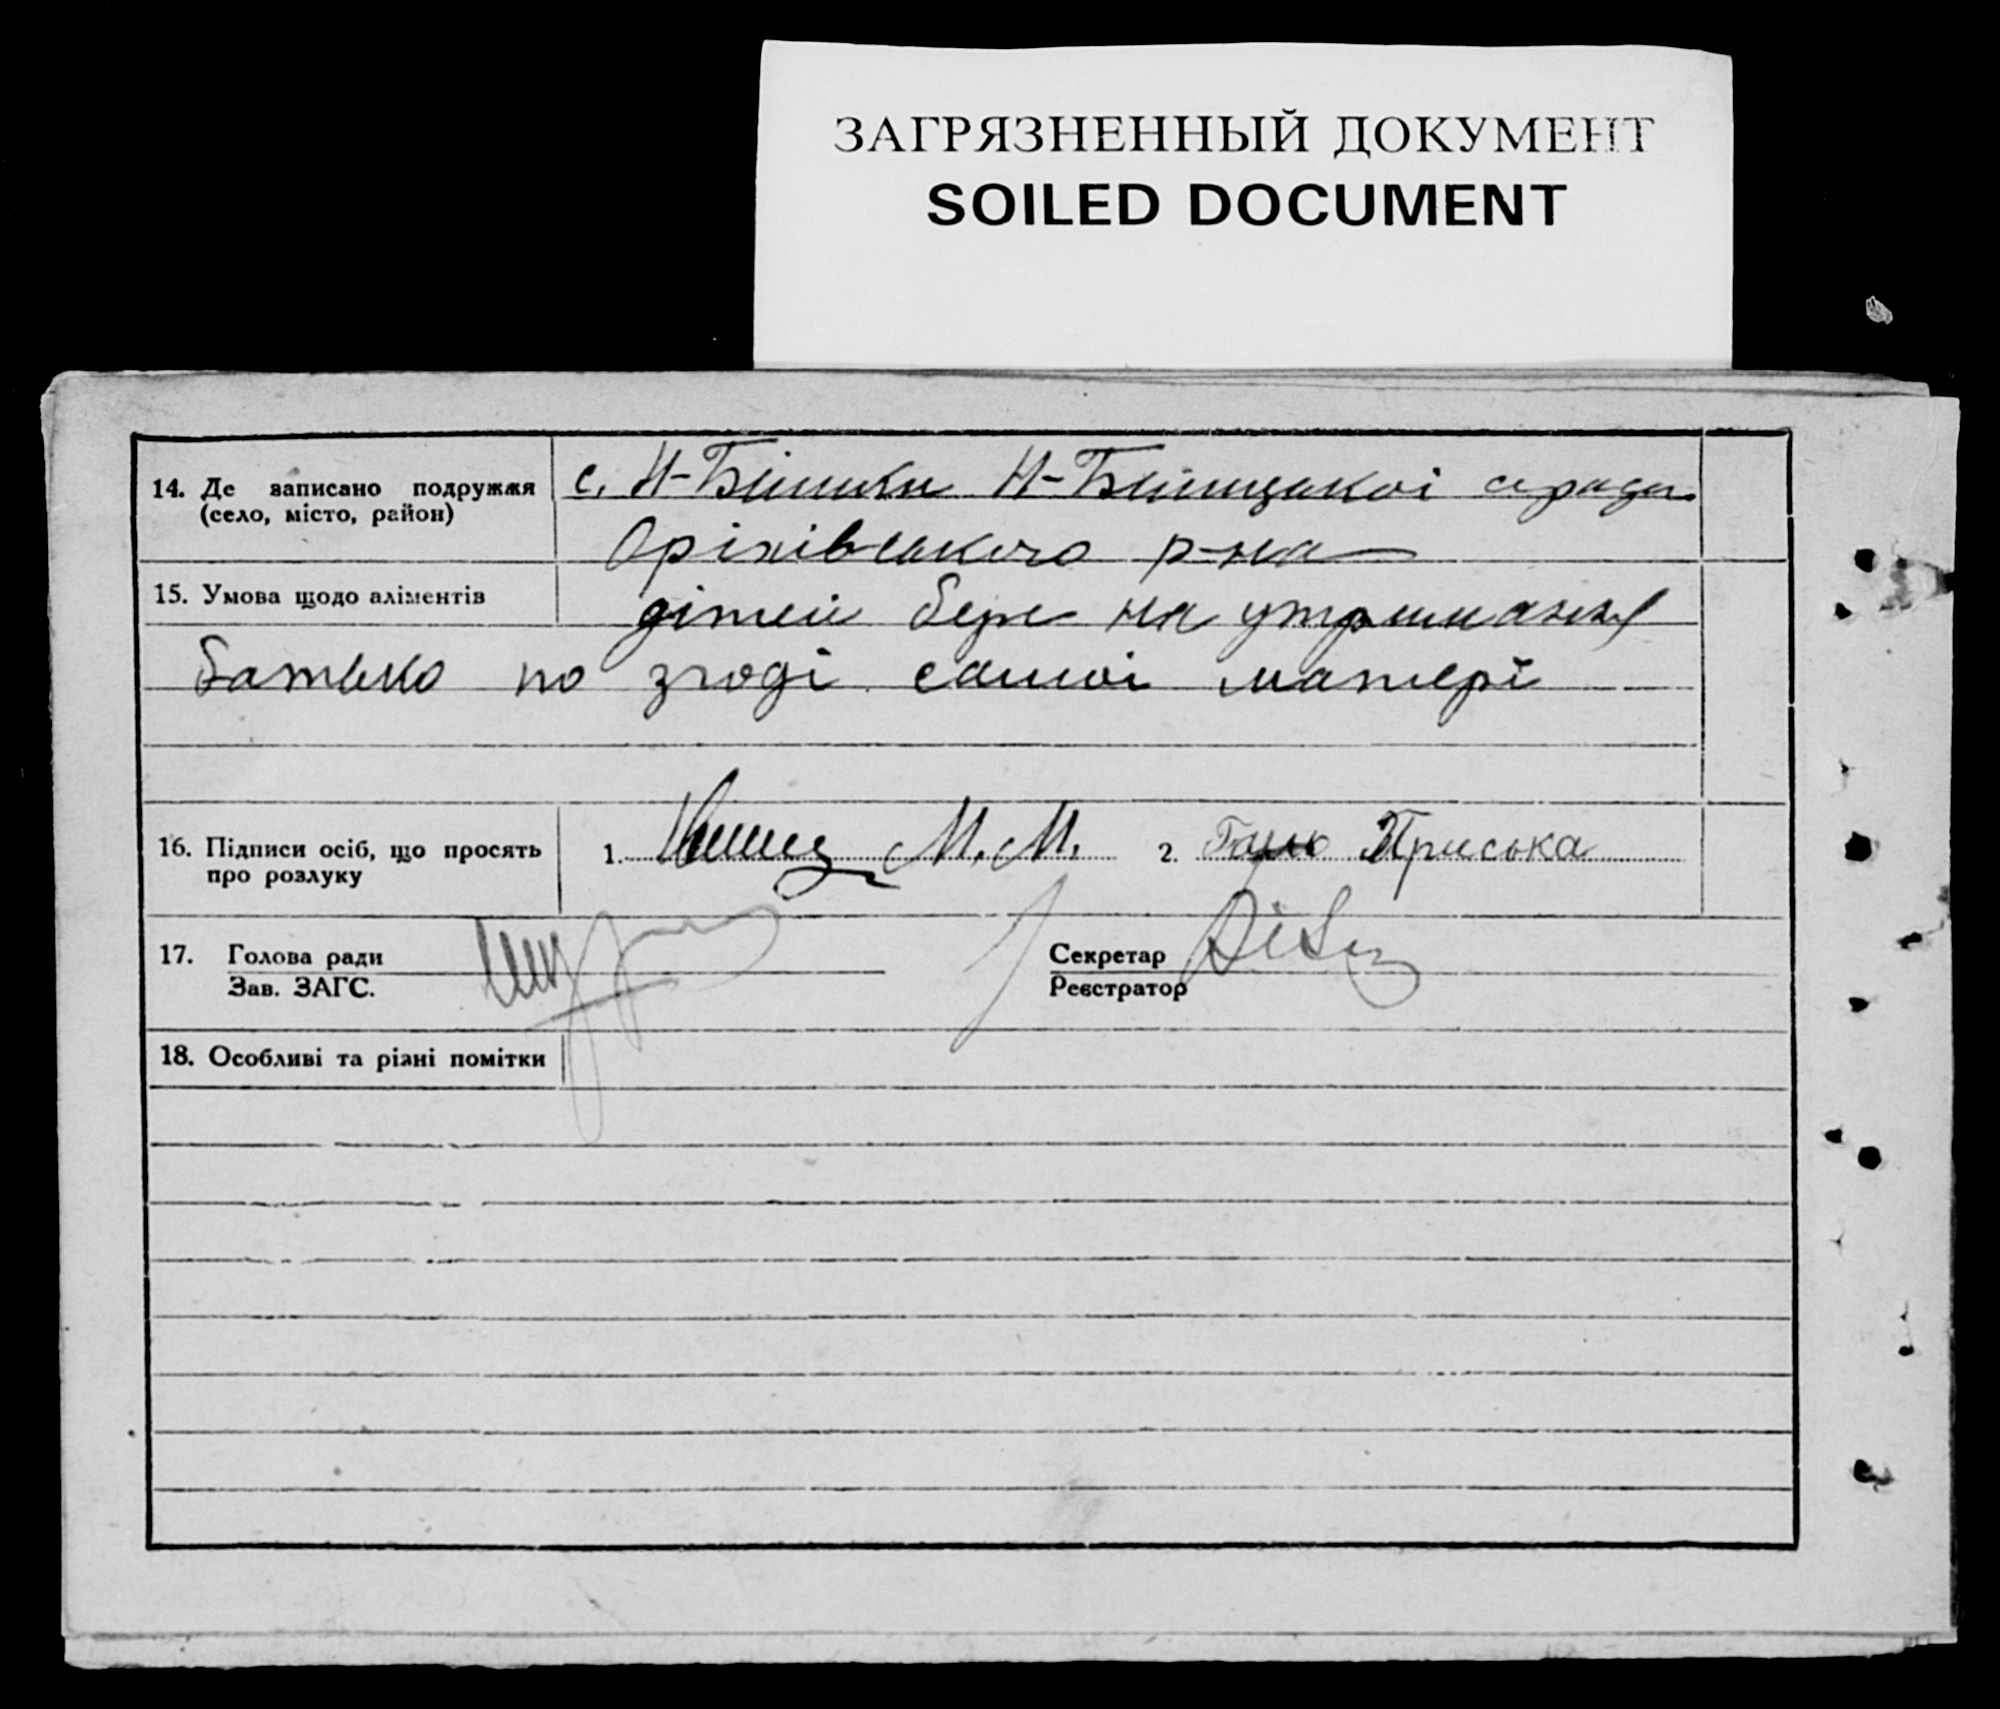 ЗАГРЯЗНЕННЫЙ ДОКУМЕНТ
SOILED DOCUMENT
14. Де записано подружжя
(село, місто, район)
с. Н-Білики Н-Білицької сради
Оріхівського р-на
15. Умова щодо аліментів
дітей бере на утримання
батько по згоді самої матері
16. Підписи осіб, що просять
про розлуку
1. М. М. 2. Приська
17. Голова ради
Зав. ЗАГС.
Секретар
Реєстратор
18. Особливі та різні помітки